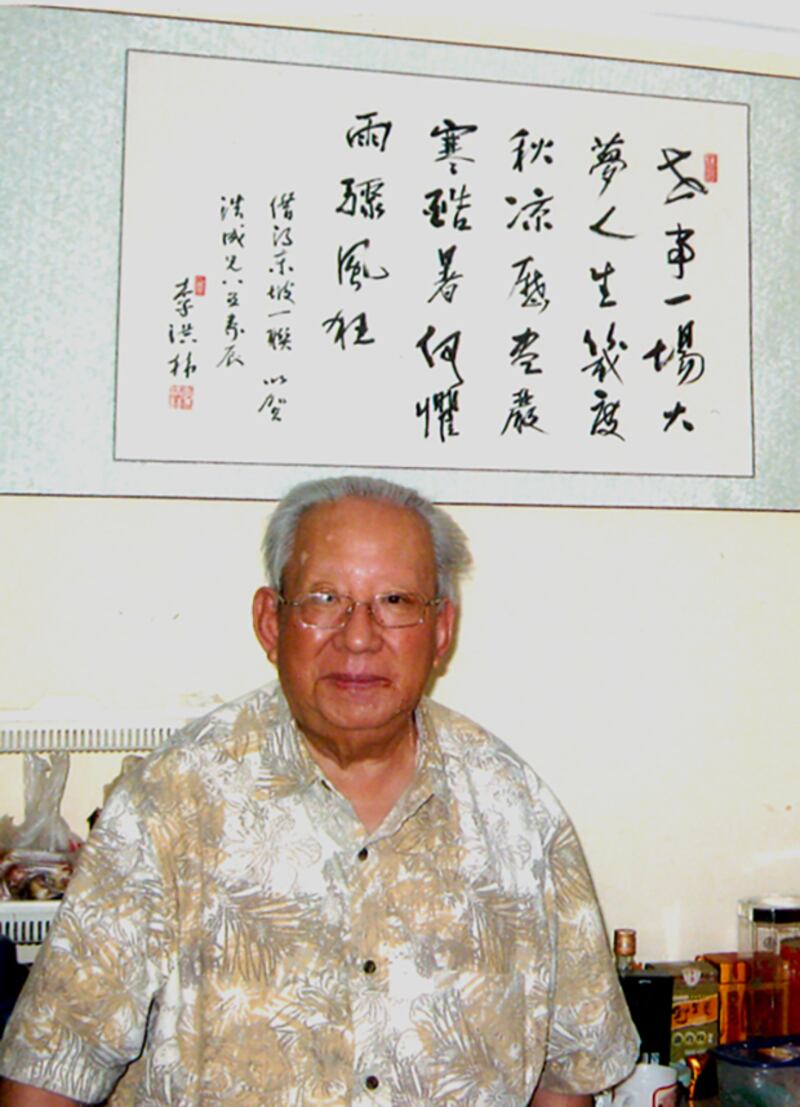 世事一場大
夢人生幾度
秋凉歷盡嚴
寒酷暑何懼
雨驟風狂
借得東坡一聯以賀
洪成兄八五壽辰
李洪林